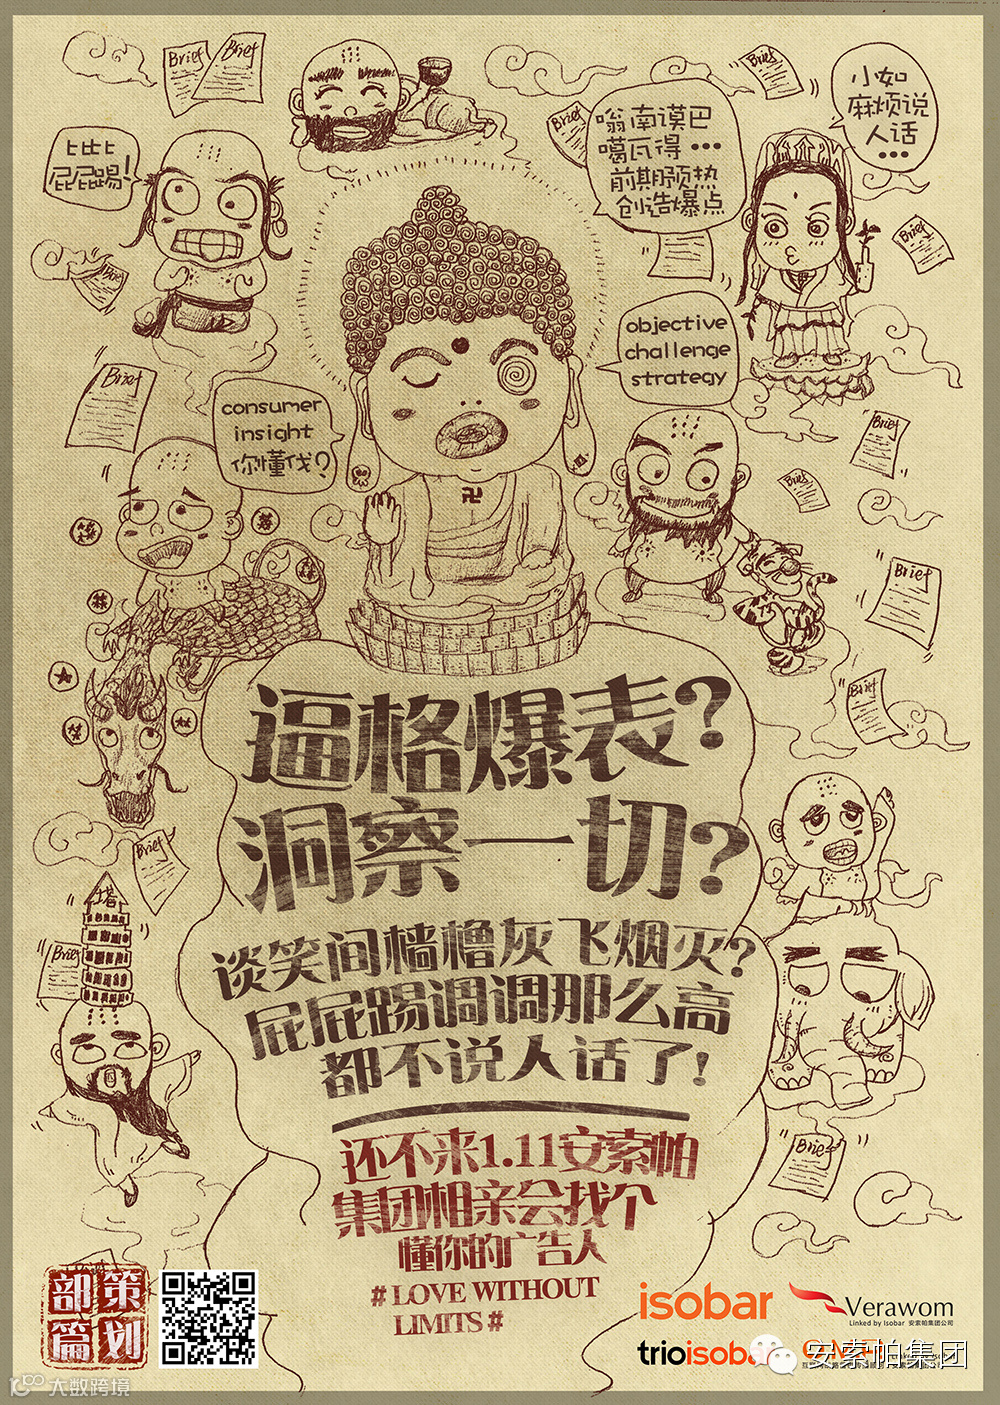 Brief
Brief
Brief
Brief
小如
麻烦说
人话
•••
ㄴㄴ比
屁屁踢!
嗡南谟巴
噶瓦得•••
前期预热
创造爆点
Brief
Brief
objective
challenge
strategy
Brief
consumer
insight
你懂伐?
Brief
Brief
卍
Brief
Brief
逼格爆表?
洞察一切?
Brief
塔
Brief
谈笑间樯橹灰飞烟灭?
屁屁踢调调那么高
都不说人话了!
还不来1.11安索帕
集团相亲会找个
懂你的广告人
# LOVE WITHOUT
LIMITS #
Brief
策划
部篇
isobar
Verawom
Linked by Isobar 安索帕集团公司
trioisobar
安索帕集团
大数跨境